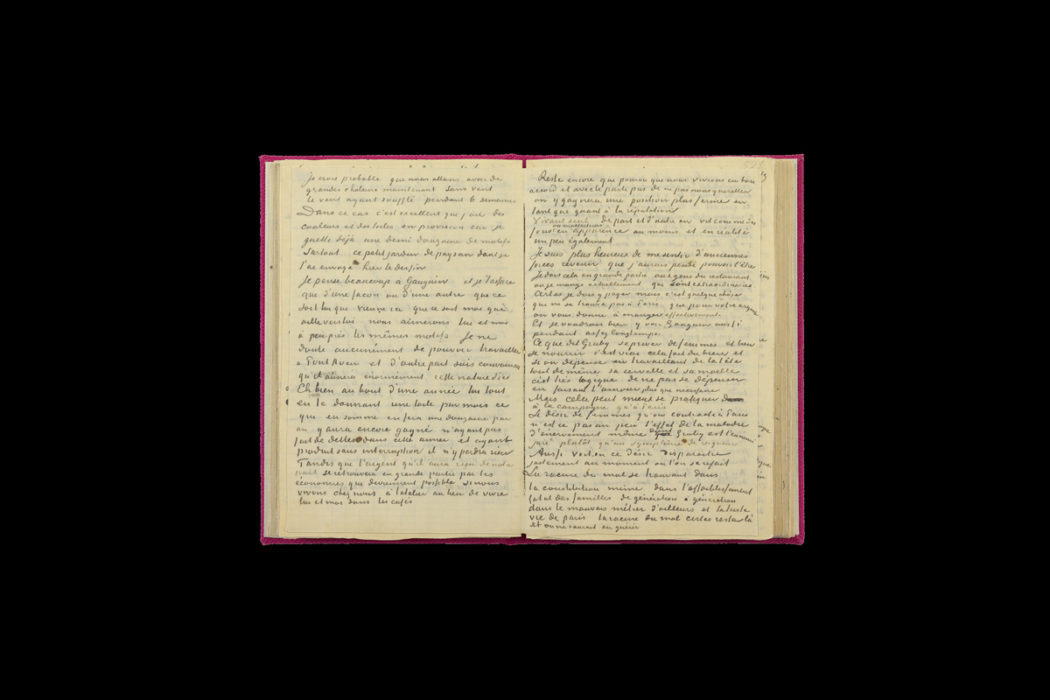 Je crois probable que nous allons avoir de
grandes chaleurs maintenant sans vent
le vent ayant soufflé pendant 6 semaines
Dans ce cas c'est excellent que j'aie des
couleurs et des toiles en provision car je
guette déjà une demi douzaine de motifs
surtout ce petit jardin de paysan dont je
t'ai envoyé hier le dessin
Je pense beaucoup à Gauguin et je t'assure
que d'une façon ou d'une autre que ce
soit lui que vienne ici que ce soit moi qui
aille vers lui nous aimerons lui et moi
à peu près les mêmes motifs Je ne
doute aucunement de pouvoir travailler
à Pont Aven et d'autre part suis convaincu
qu'il aimera énormément cette nature d'ici
Eh bien au bout d'une année lui tout
en te donnant une toile par mois ce
que en somme en fera une douzaine par
an y aura encore gagné n'ayant pas
fait de dettes dans cette année et ayant
produit sans interruption il n'y perdra rien
Tandis que l'argent qu'il aura reçu de notre
part se retrouvera en grande partie par les
économies que deviennent possible si nous
vivons chez nous à l'atelier au lieu de vivre
lui et moi dans les cafés
523
Reste encore que pourvu que nous vivions en bon
accord et avec le parti pris de ne pas nous quereller
on y gagnera une position plus ferme en
tant que quant à la réputation
Vivant seuls de part et d'autre on vit comme des
fous
ou malfaiteurs
en apparence au moins et en réalité
un peu également
Je suis plus heureux de me sentir d'anciennes
forces revenir que j'aurais pensé pouvoir l'être
Je dois cela en grande partie aux gens du restaurant
où je mange actuellement qui sont extraordinaires
Certes je dois y payer mais c'est quelque chose
qui ne se trouve pas à Paris que pour votre argent
on vous donne à manger effectivement
Et je voudrais bien y voir Gauguin aussi
pendant assez longtemps.
Ce que dit Gruby se priver de femmes et bien
se nourrir c'est vrai cela fait du bien et
si on dépense en travaillant de la tête
tout de même sa cervelle et sa moelle
c'est très logique de ne pas se dépenser
en faisant l'amour plus que nécessaire
Mais cela peut mieux se pratiquer
à la campagne qu'à Paris
Le désir de femmes qu'on contracte à Paris
n'est ce pas un peu l'effet de la maladie
d'énervement même
dont
Gruby est l'ennemi
juré plutôt qu'un symptôme de vigueur
Aussi voit on ce désir disparaître
justement au moment où l'on se refait
La racine du mal se trouvant dans
la constitution même dans l'affaiblissement
fatal des familles de génération à génération
dans le mauvais métier d'ailleurs et la triste
vie de Paris la racine du mal certes reste là
et on ne saurait en guérir